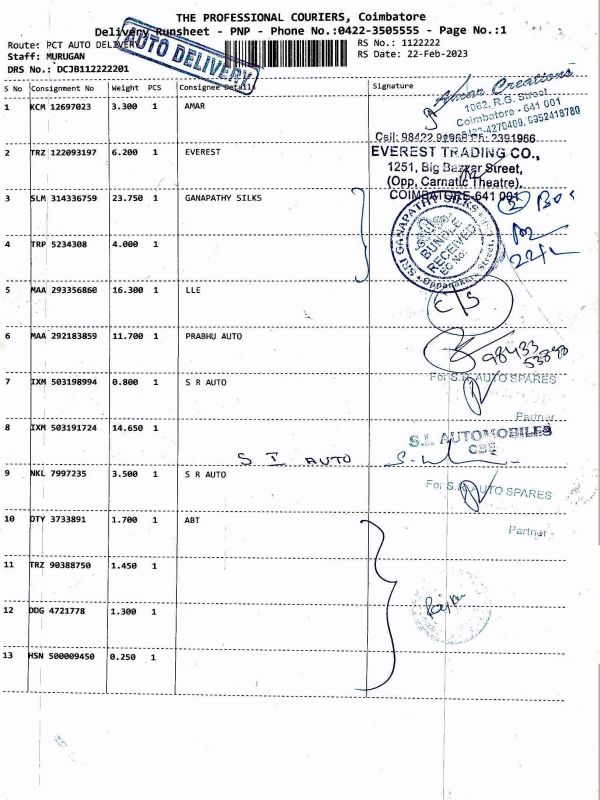 THE PROFESSIONAL COURIERS, Coimbatore
Delivery Runsheet - PNP - Phone No.:0422-3505555 - Page No.:1
Route: PCT AUTO DELIVERY
RS No.: 1122222
Staff: MURUGAN
RS Date: 22-Feb-2023
DRS No.: DCJB112222201
AUTO DELIVERY
S No Consignment No Weight PCS Consignee Details Signature
1 KCM 12697023 3.300 1 AMAR
Aman Creations
1062, R.G. Street
Coimbatore - 641 001
Cell: 98422
2 TRZ 122093197 6.200 1 EVEREST
EVEREST TRADING CO.,
1251, Big Bazaar Street,
(Opp, Carnatic Theatre),
COIMBATORE-641 001
3 SLM 314336759 23.750 1 GANAPATHY SILKS
SRI GANAPATHY SILKS
BUNDLE
RECEIVED
Oppanakara Street,
4 TRP 5234308 4.000 1
5 MAA 293356860 16.300 1 LLE
6 MAA 292183859 11.700 1 PRABHU AUTO
98433
7 IXM 503198994 0.800 1 S R AUTO
For S.R. AUTO SPARES
Partner
8 IXM 503191724 14.650 1
S.I. AUTOMOBILES
CBE
S I AUTO
9 NKL 7997235 3.500 1 S R AUTO
For S.R. AUTO SPARES
Partner
10 OTY 3733891 1.700 1 ABT
11 TRZ 90388750 1.450 1
12 DDG 4721778 1.300 1
13 HSN 500009450 0.250 1